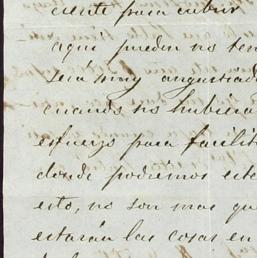 ciente para cubrir
aquí pueden no ten
será muy angustiado
cuando no hubiera
esfuerzo para facilit
donde podremos este
esto, no son mas que
estarán las cosas en